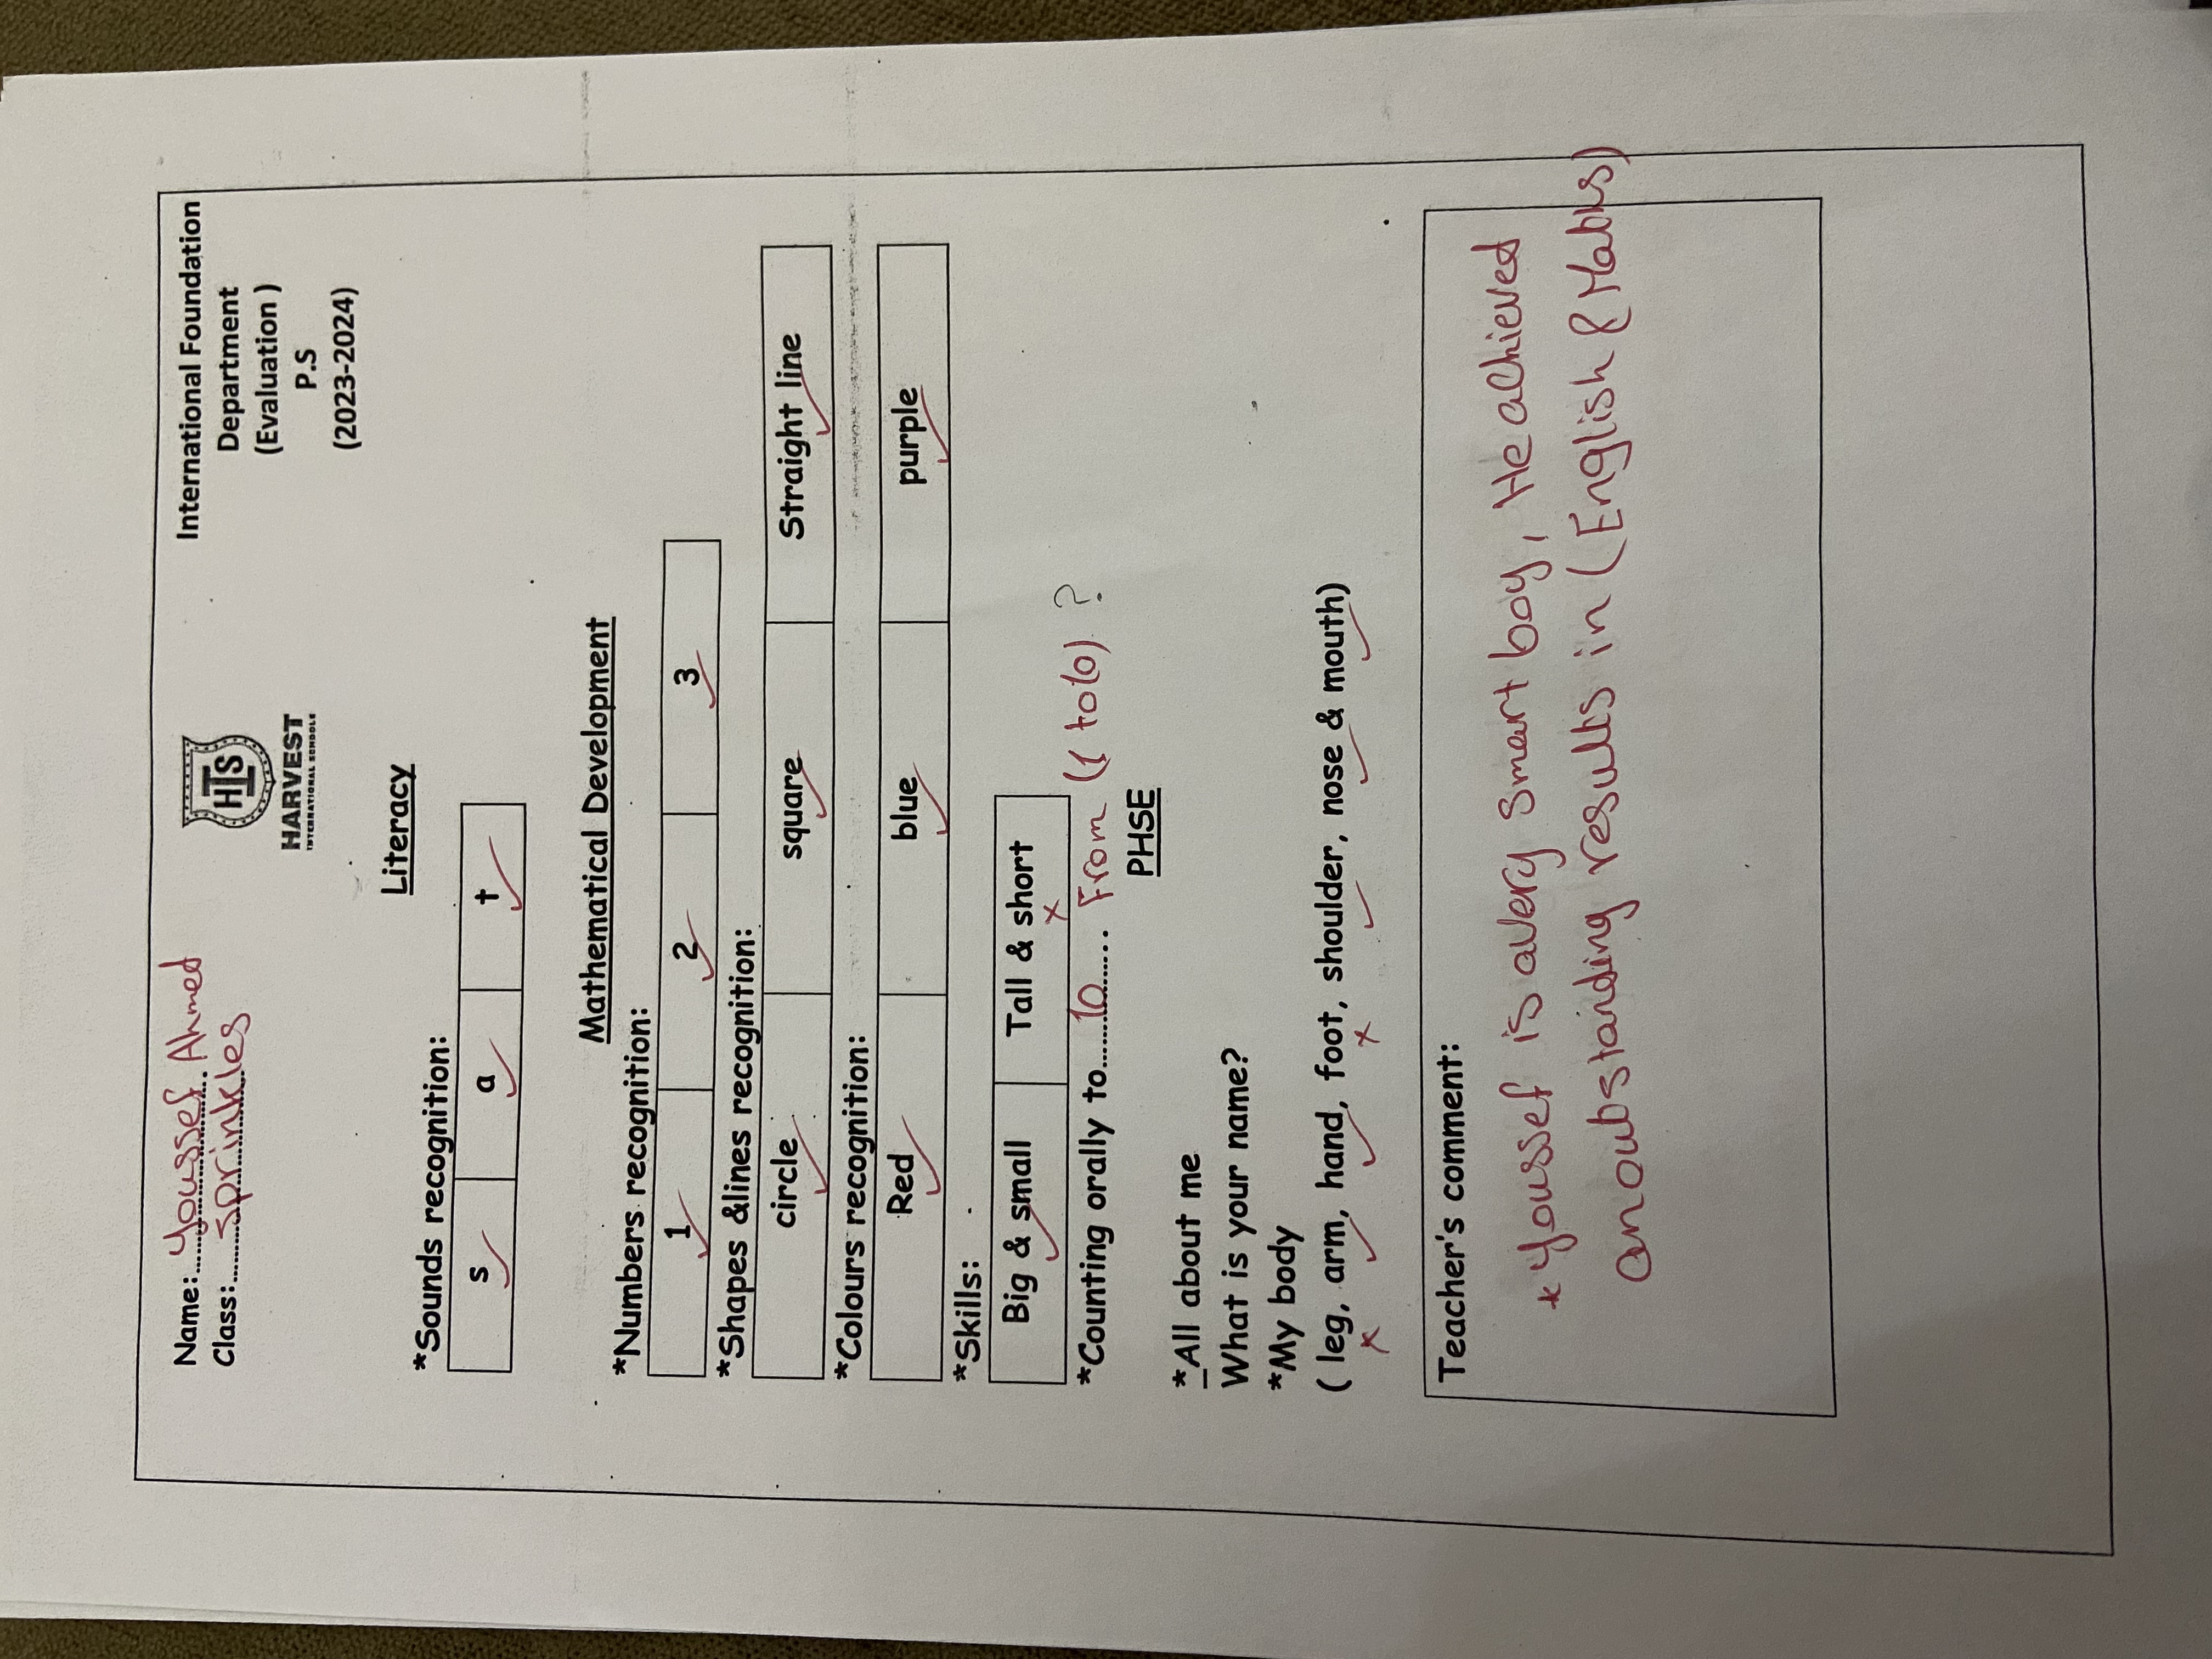 Name: Youssef Ahmed
Class: sprinkles
HIS
HARVEST
INTERNATIONAL SCHOOLS
International Foundation
Department
(Evaluation )
P.S
(2023-2024)
Literacy
*Sounds recognition:
s a t
Mathematical Development
*Numbers recognition:
1 2 3
*Shapes &lines recognition:
circle square Straight line
*Colours recognition:
Red blue purple
*Skills:
Big & small Tall & short
*Counting orally to.....10...... From (1 to 10) ?
PHSE
*All about me
What is your name?
*My body
( leg, arm, hand, foot, shoulder, nose & mouth)
Teacher's comment:
* Youssef is a very smart boy, He achieved
an outstanding results in (English & Maths)